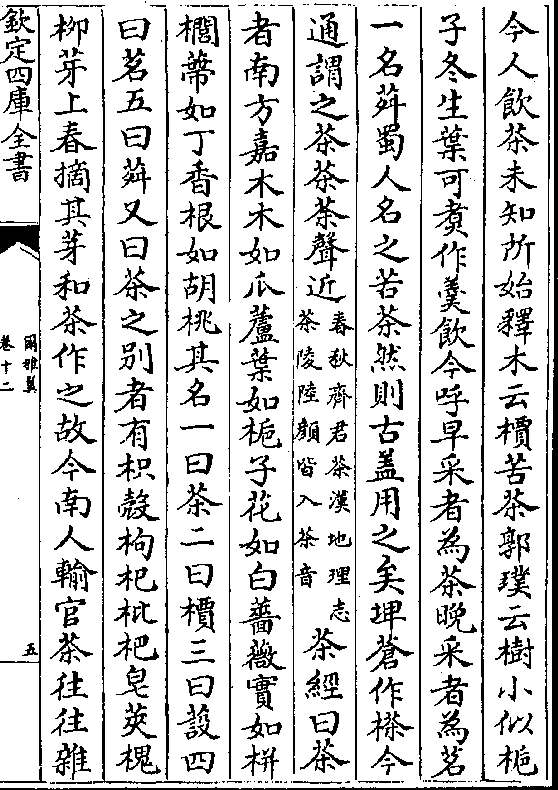 今人飲茶未知所始釋木云檟苦荼郭璞云樹小似梔
子冬生葉可煑作羮飲今呼早采者為茶晚采者為茗
一名荈蜀人名之苦荼然則古盖用之矣埤蒼作𣗪今
通謂之茶茶荼聲近春秋齊君荼漢地理志
荼陵陸顔皆入茶音茶經曰茶
者南方嘉木木如瓜蘆葉如梔子花如白薔薇實如栟
櫚蔕如丁香根如胡桃其名一曰茶二曰檟三曰蔎四
曰茗五曰荈又曰茶之别者有枳殻枸杞枇杷皂莢槐
栁芽上春摘其芽和茶作之故今南人輸官茶往往雜
欽定四庫全書
爾雅翼
卷十二
五